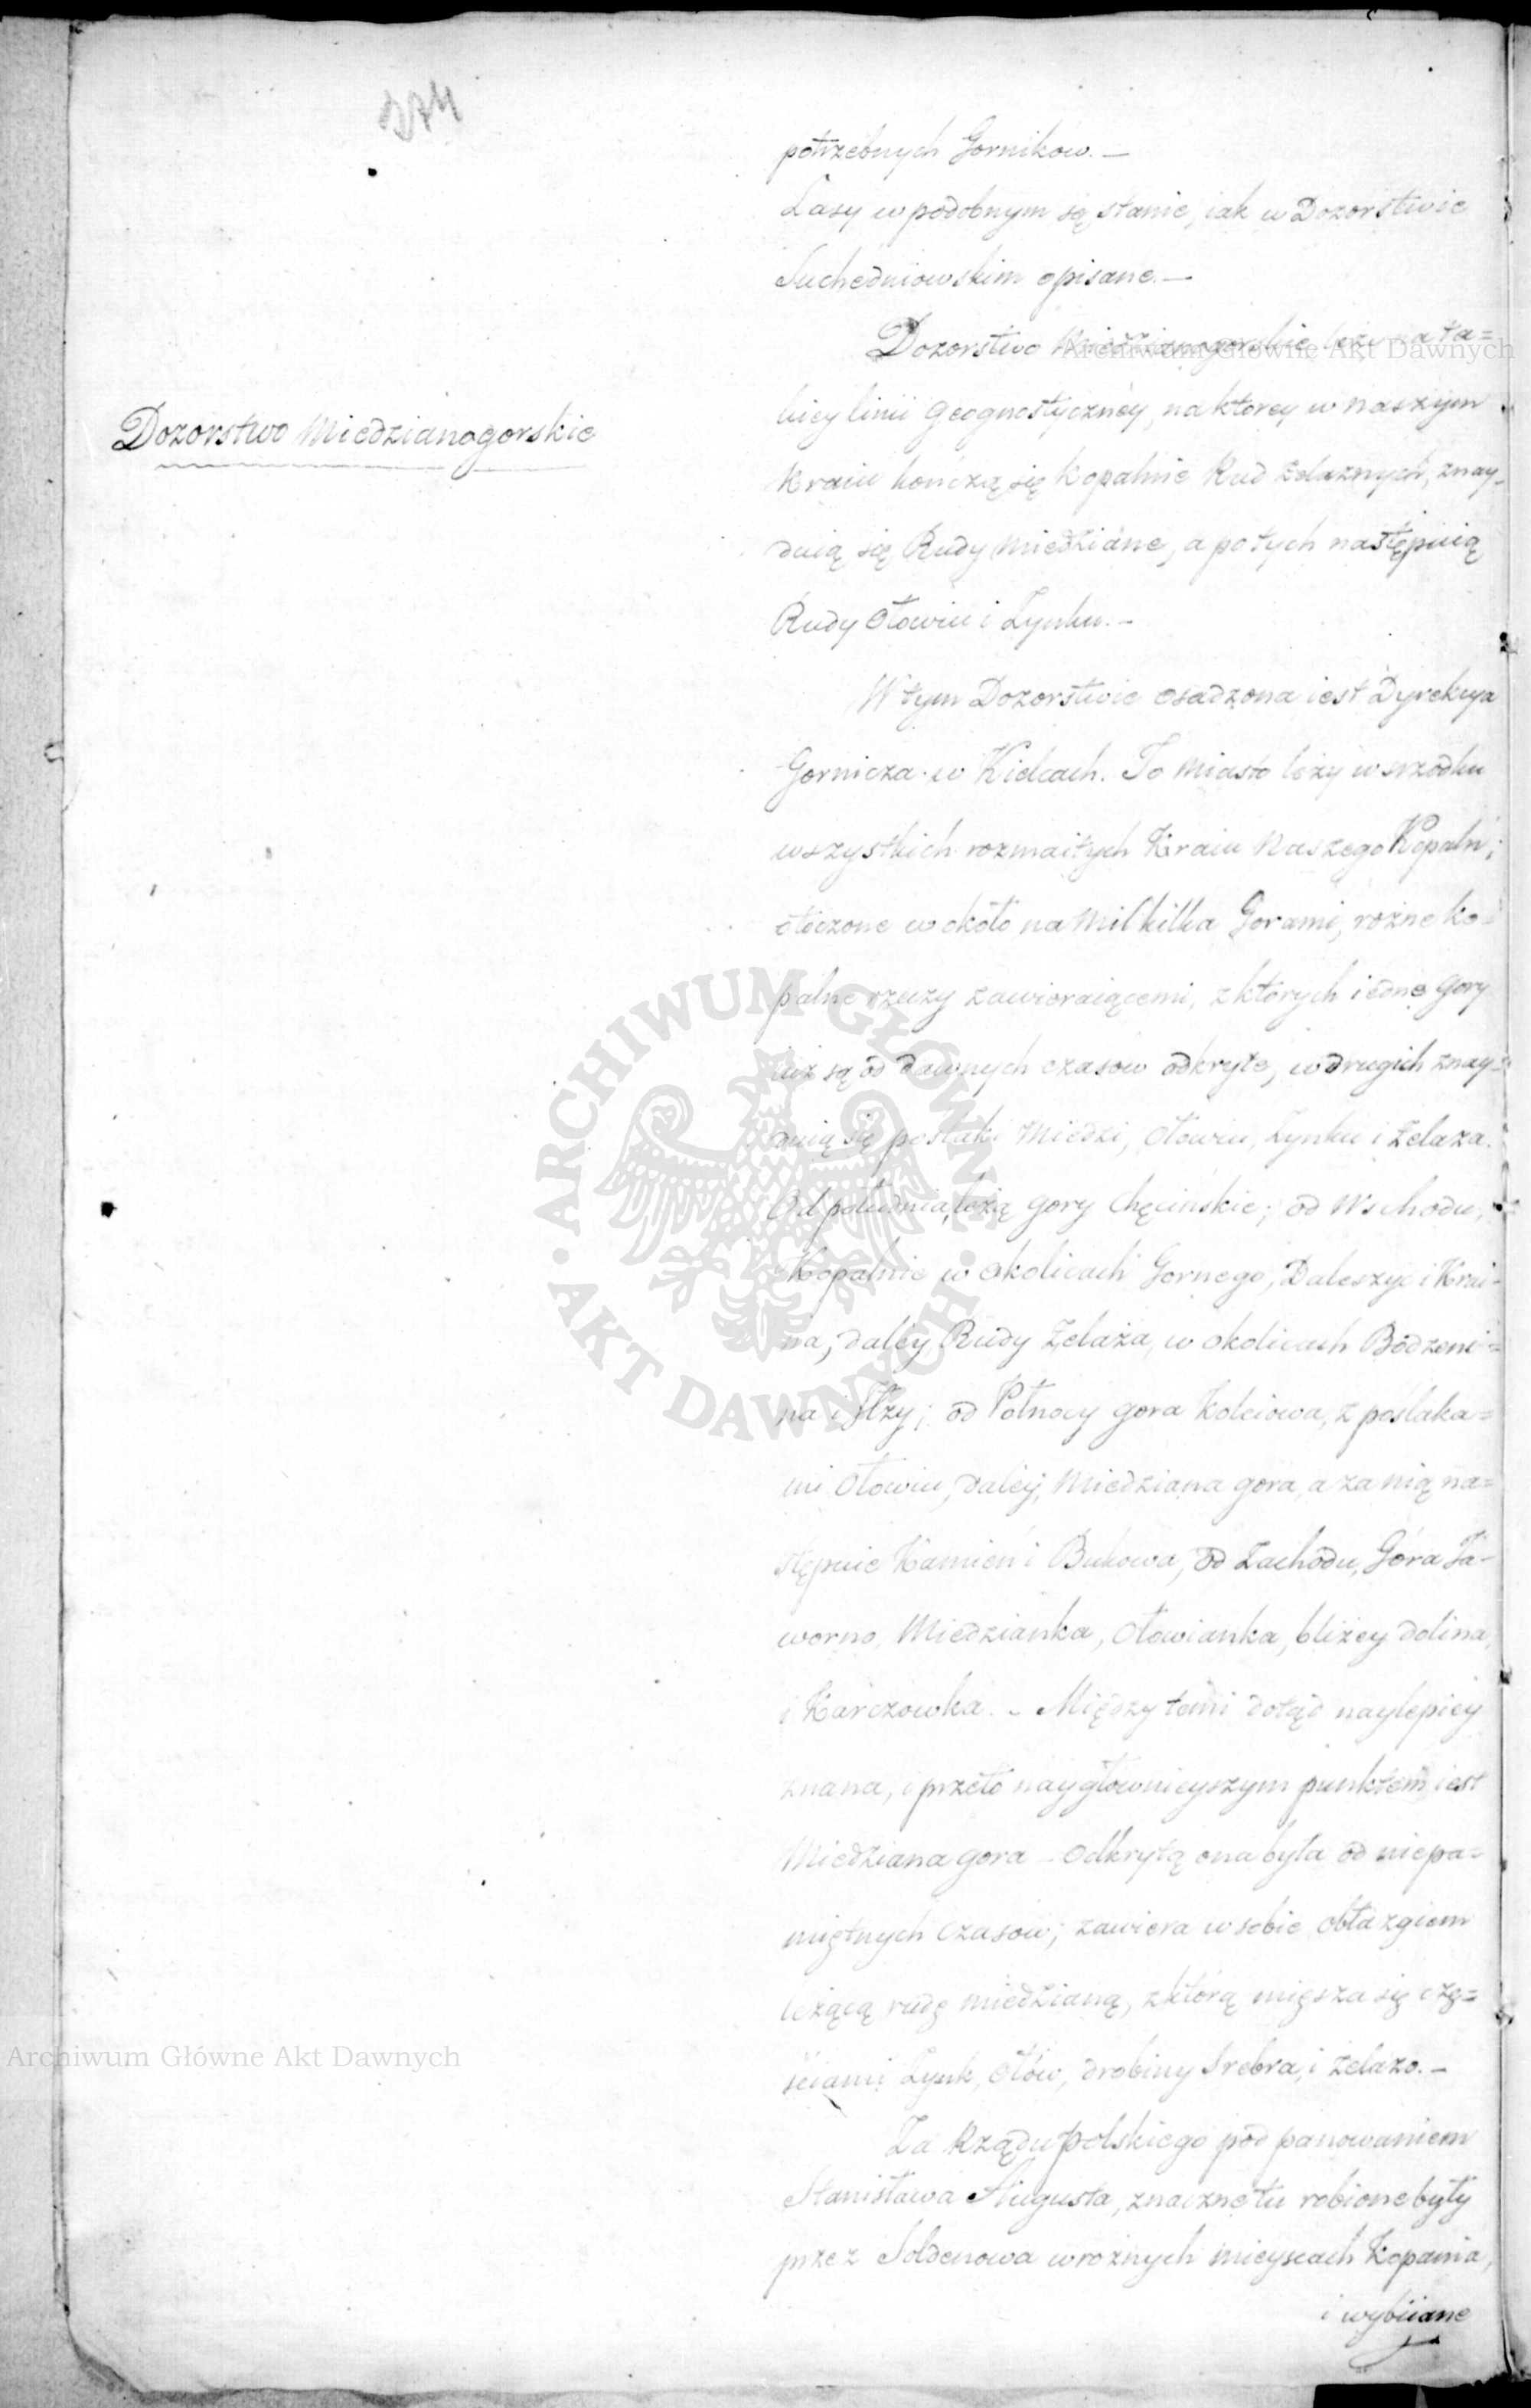 274
potrzebnych Gornikow. —
Lasy w podobnym są stanie, iak w Dozorstwie
Suchedniowskim opisane. —
Dozorstwo Miedzianogorskie
Dozorstwo Miedzianogorskie leży na ta=
kiey linii geognostyczney, na ktorey w naszym
Kraiu kończą się kopalnie Rud żelaznych, znay-
duią się Rudy miedziane, a po tych następuią
Rudy Ołowiu i Zynku. —
W tym Dozorstwie osadzona iest Dyrekcya
Gornicza w Kielcach. To miasto leży w srzodku
wszystkich rozmaitych Kraiu naszego Kopalń;
otoczone w około na mil kilka Gorami, rożne ko=
palne rzeczy zawieraiącemi, z ktorych iedne gory
iuż są od dawnych czasow odkryte, w drugich znay=
duią się poslaki Miedzi, Ołowiu, Zynku i żelaza.
Od południa leżą gory Chęcińskie; od Wschodu,
Kopalnie w okolicach Gornego, Daleszyc i Krai-
na, daley Rudy żelaza, w okolicach Bodzenci=
na i Iłży; od Połnocy gora Kolciowa, z poślaka=
mi Ołowiu, daley, Miedziana gora, a za nią na=
stępuie Kamień i Bukowa, od Zachodu, Góra Ja-
worno, Miedzianka, Ołowianka, bliżey dolina,
i Karczowka. - Między temi dotąd naylepiey
znana, i przeto naygłownieyszym punktem iest
Miedziana gora - Odkrytą ona była od niepa=
miętnych czasow; zawiera w sobie obłazgiem
leżącą rudę miedzianą, z ktorą miesza się czę=
ściami Zynk, Ołów, drobiny Srebra, i żelazo. —
Za Rządu polskiego pod panowaniem
Stanisława Augusta, znaczne tu robione były
przez Soldenowa w rożnych mieyscach Kopania,
i wybiiane
Archiwum Główne Akt Dawnych
Archiwum Główne Akt Dawnych
ARCHIWUM GŁÓWNE · AKT DAWNYCH ·